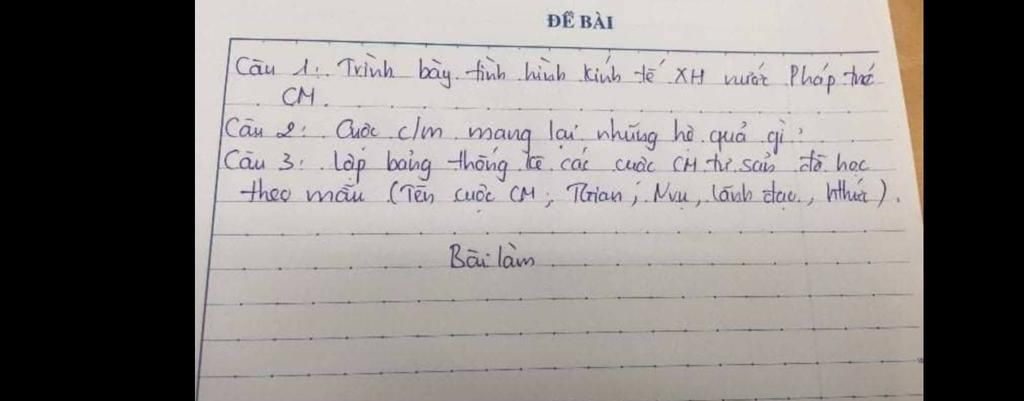 ĐỀ BÀI
Câu 1: Trình bày tình hình kinh tế XH nước Pháp trước
CM.
Câu 2: Cuộc c/m mang lại những hệ quả gì?
Câu 3: Lập bảng thống kê các cuộc CM tư sản đã học
theo mẫu (Tên cuộc CM, TGian, Nvụ, lãnh đạo, hthức).
Bài làm